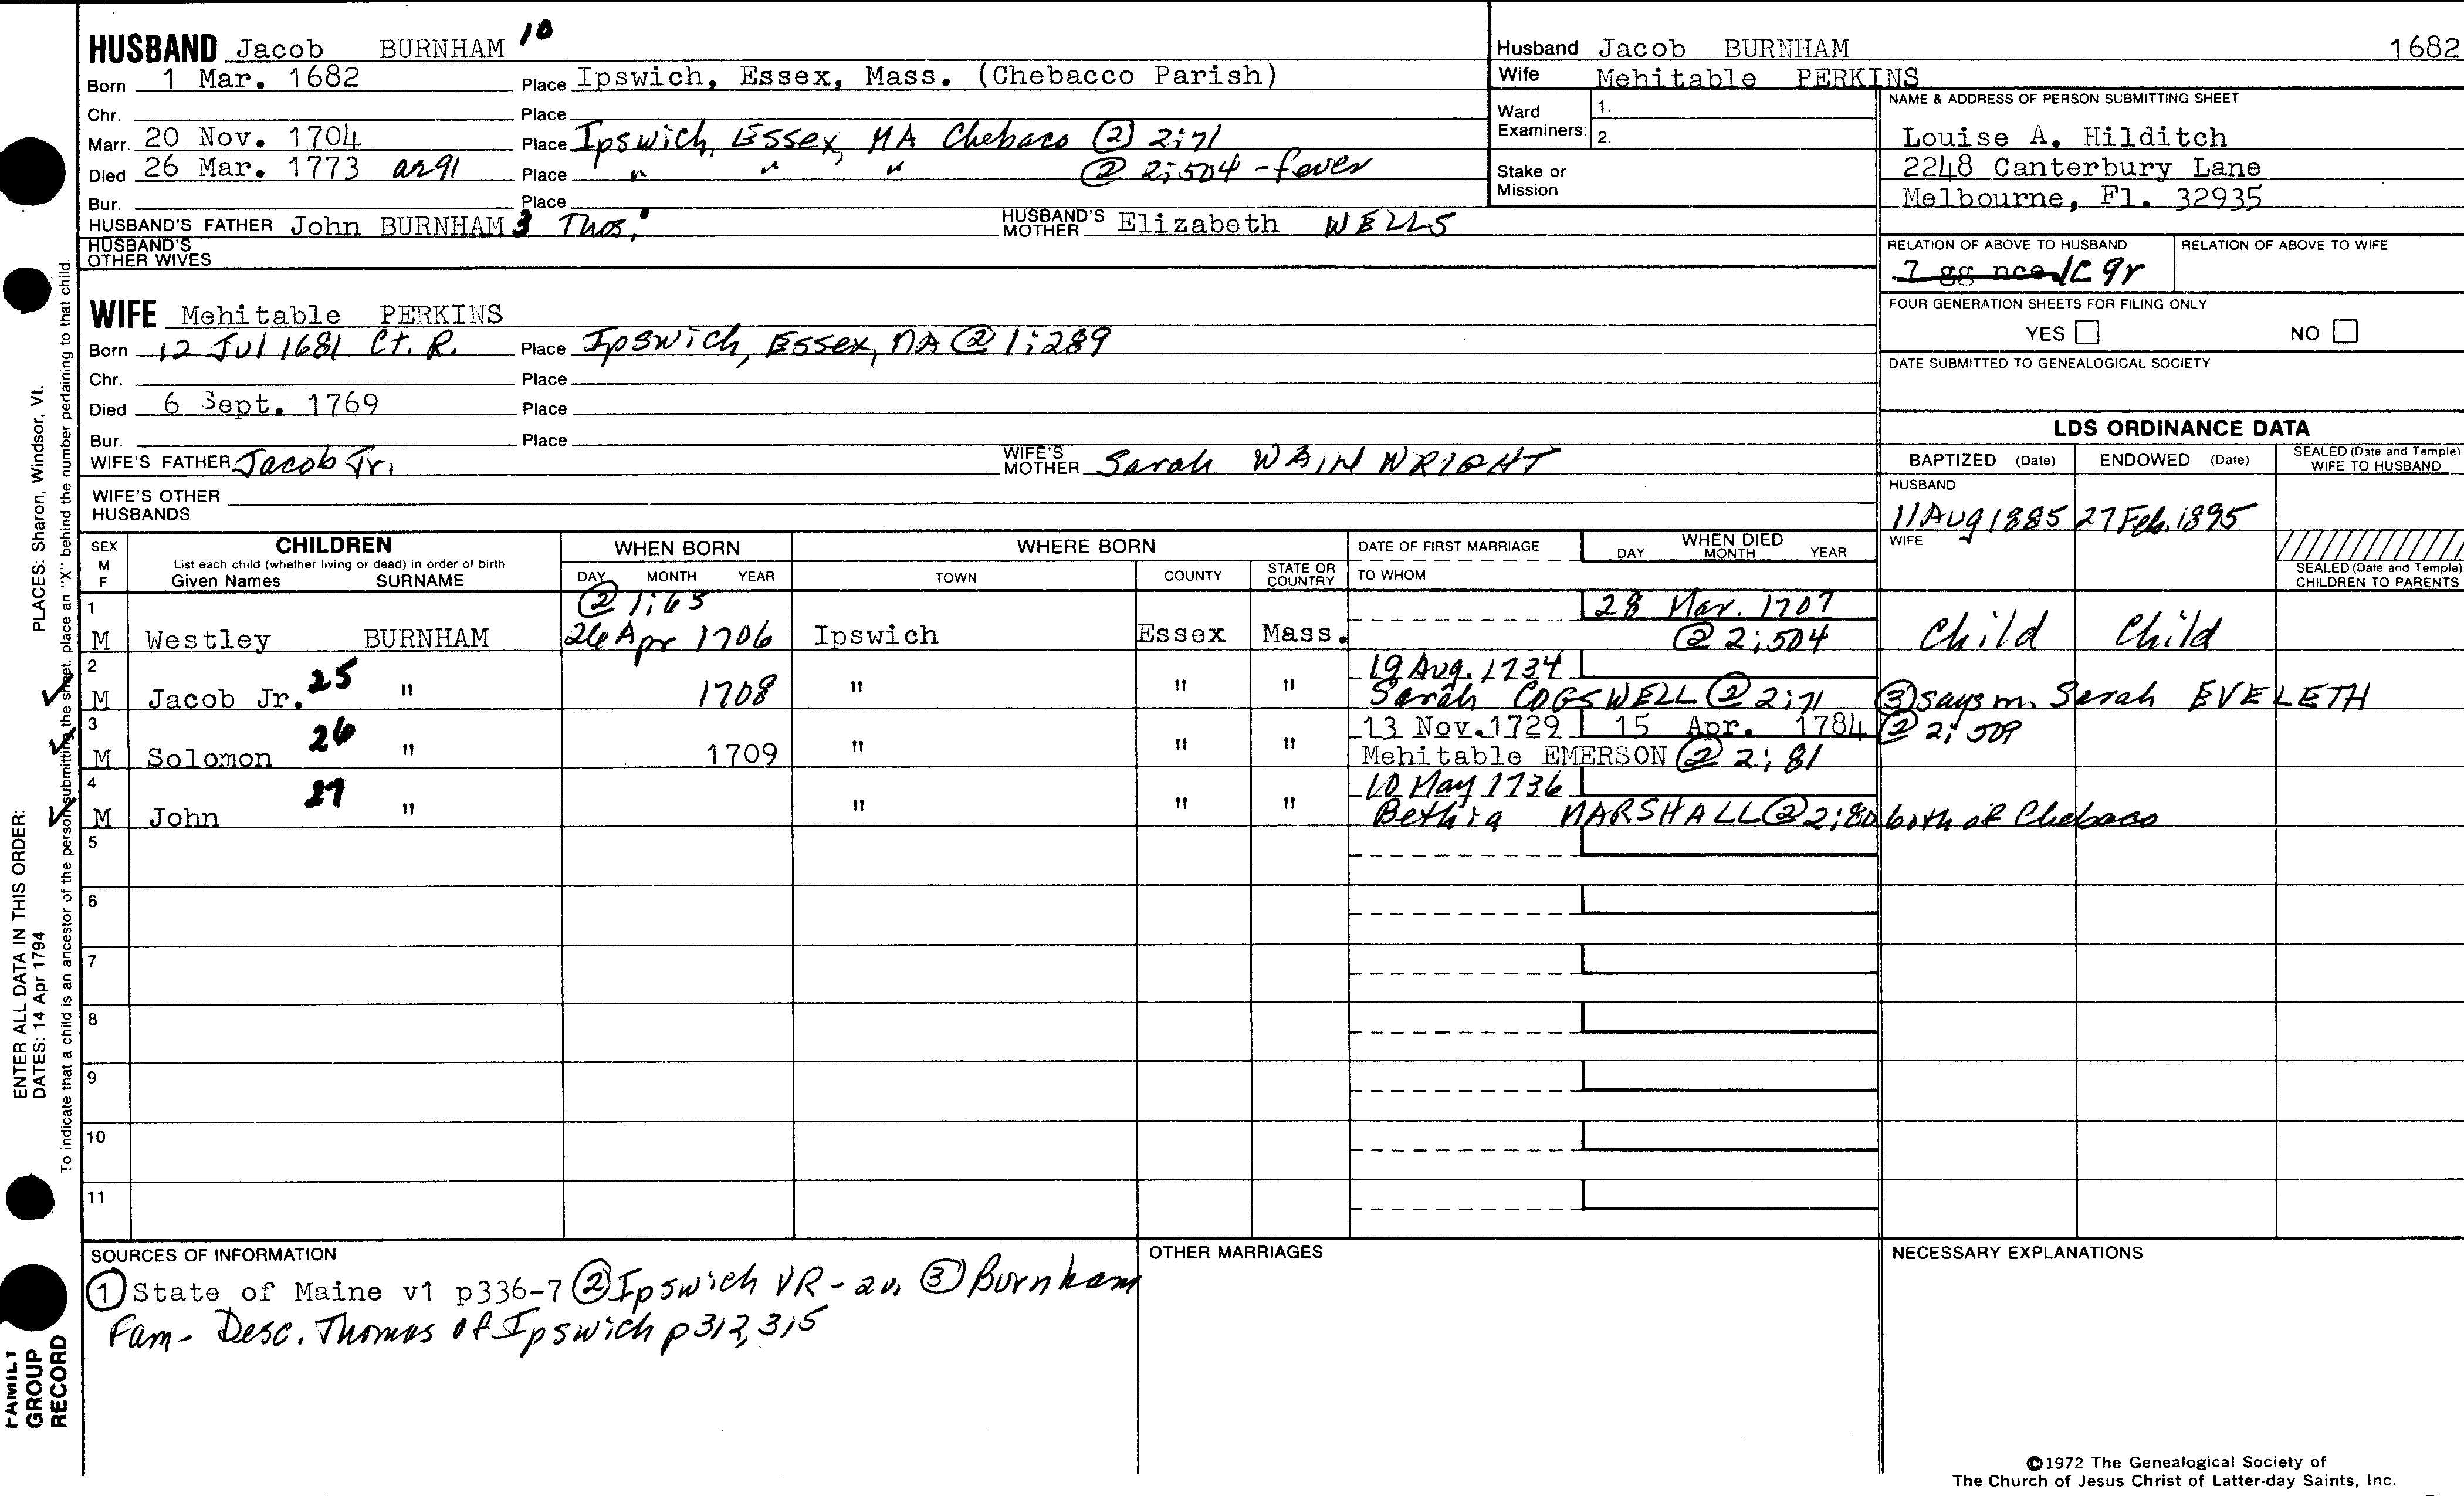 HUSBAND Jacob BURNHAM 10
Born 1 Mar. 1682 Place Ipswich, Essex, Mass. (Chebacco Parish)
Chr. Place
Marr. 20 Nov. 1704 Place Ipswich, Essex, MA Chebaco @ 2:71
Died 26 Mar. 1773 ae 91 Place " " " @ 2:504 - fever
Bur. Place
HUSBAND'S FATHER John BURNHAM 3 Thos. HUSBAND'S MOTHER Elizabeth WELLS
HUSBAND'S OTHER WIVES
Husband Jacob BURNHAM 1682
Wife Mehitable PERKINS
Ward Examiners: 1.
2.
Stake or Mission
NAME & ADDRESS OF PERSON SUBMITTING SHEET
Louise A. Hilditch
2248 Canterbury Lane
Melbourne, Fl. 32935
RELATION OF ABOVE TO HUSBAND RELATION OF ABOVE TO WIFE
7 gg nce 1C 9r
FOUR GENERATION SHEETS FOR FILING ONLY
YES NO
DATE SUBMITTED TO GENEALOGICAL SOCIETY
WIFE Mehitable PERKINS
Born 12 Jul 1681 Ct. R. Place Ipswich, Essex, MA @ 1:289
Chr. Place
Died 6 Sept. 1769 Place
Bur. Place
WIFE'S FATHER Jacob Jr. WIFE'S MOTHER Sarah WAINWRIGHT
WIFE'S OTHER HUSBANDS
LDS ORDINANCE DATA
BAPTIZED (Date) ENDOWED (Date) SEALED (Date and Temple) WIFE TO HUSBAND
HUSBAND
11 Aug 1885 27 Feb. 1895
WIFE
SEALED (Date and Temple) CHILDREN TO PARENTS
SEX M F CHILDREN WHEN BORN WHERE BORN DATE OF FIRST MARRIAGE WHEN DIED
List each child (whether living or dead) in order of birth
Given Names SURNAME DAY MONTH YEAR TOWN COUNTY STATE OR COUNTRY TO WHOM DAY MONTH YEAR
1 @ 1:65 28 Mar. 1707
M Westley BURNHAM 26 Apr 1706 Ipswich Essex Mass. @ 2:504 Child Child
2 19 Aug. 1734
M Jacob Jr. 25 " 1708 " " " Sarah COGSWELL @ 2:71 ③ says m. Sarah EVELETH
3 13 Nov. 1729 15 Apr. 1784 @ 2:509
M Solomon 26 " 1709 " " " Mehitable EMERSON @ 2:81
4 10 May 1736
M John 27 " " " " Bethia MARSHALL @ 2:80 both of Chebaco
5
6
7
8
9
10
11
SOURCES OF INFORMATION
① State of Maine v1 p336-7 ② Ipswich VR- ③ Burnham
Fam- Desc. Thomas of Ipswich p312, 315
OTHER MARRIAGES
NECESSARY EXPLANATIONS
©1972 The Genealogical Society of
The Church of Jesus Christ of Latter-day Saints, Inc.
PLACES: Sharon, Windsor, Vt.
ENTER ALL DATA IN THIS ORDER:
DATES: 14 Apr 1794
To indicate that a child is an ancestor of the person submitting the sheet, place an "X" behind the number pertaining to that child.
FAMILY
GROUP
RECORD